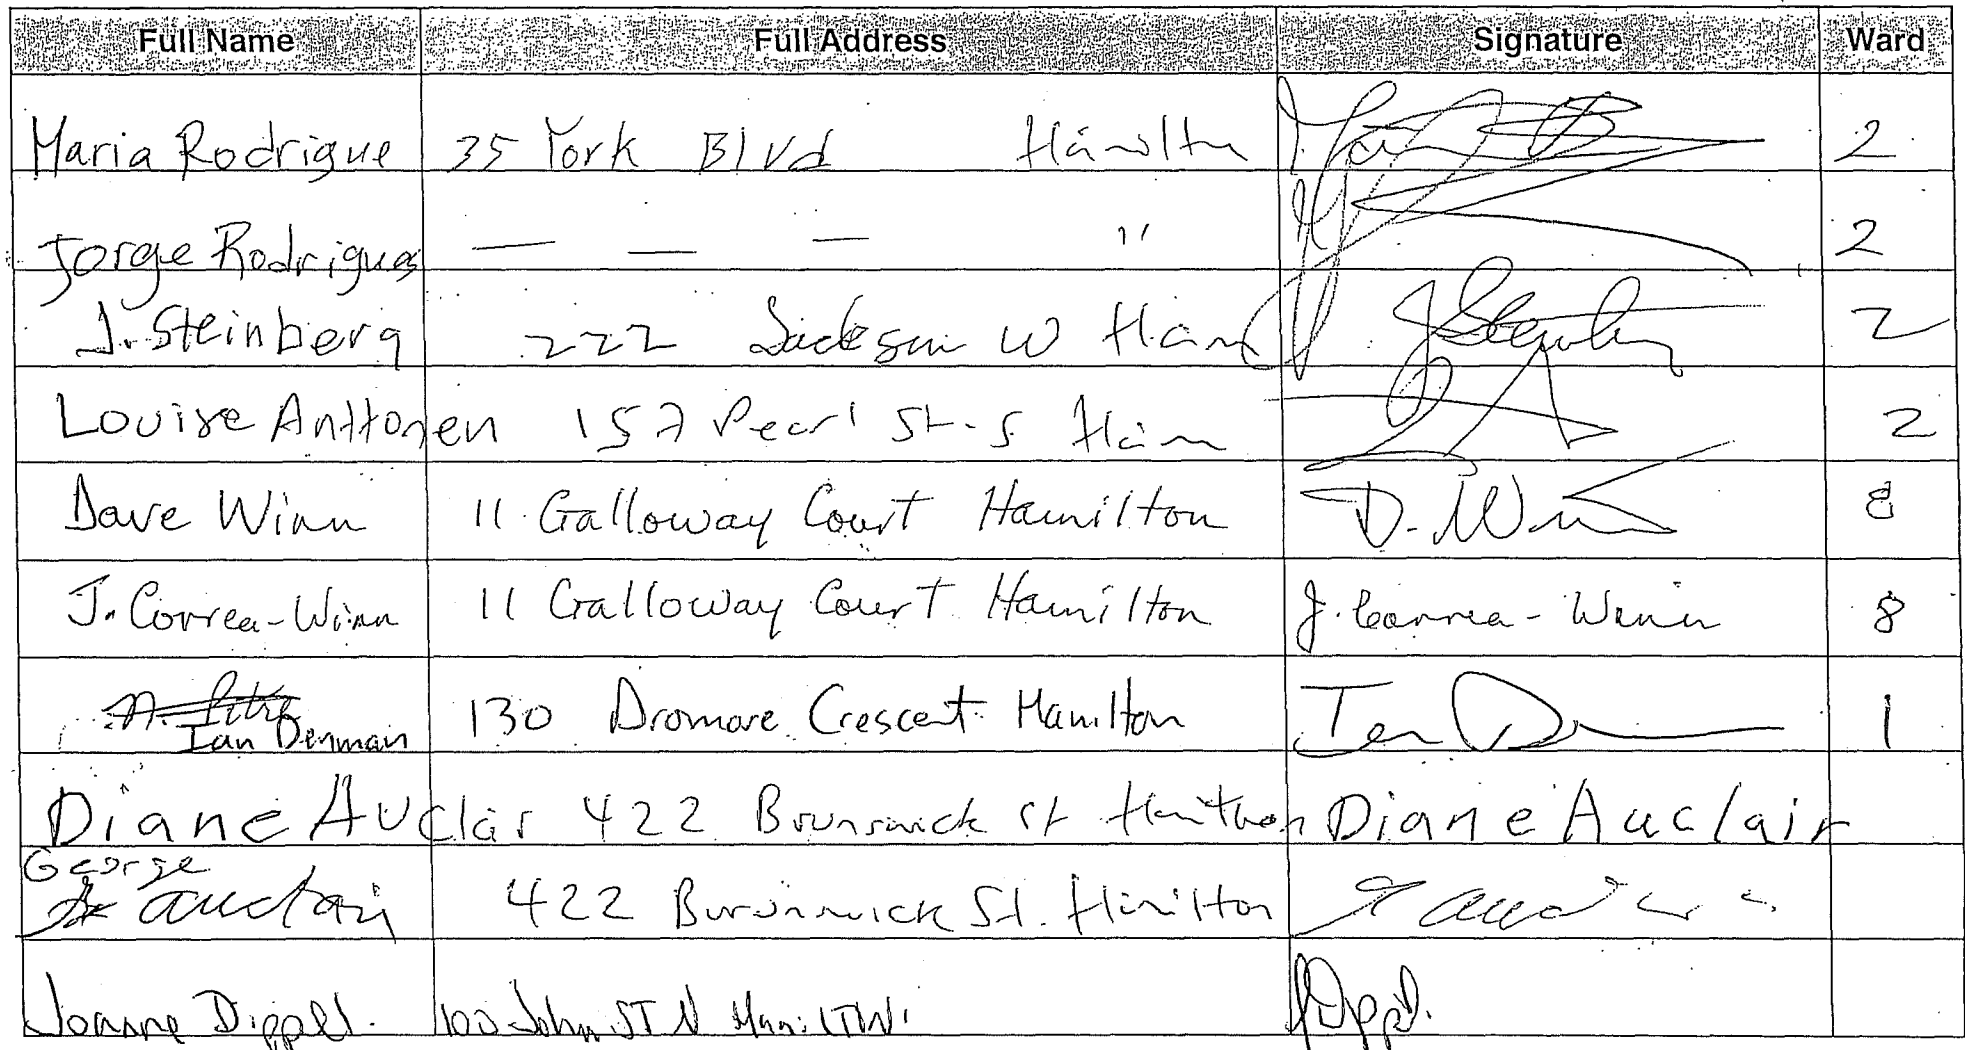 Full Name Full Address Signature Ward
Maria Rodrigue 35 York Blvd Hamilton 2
Jorge Rodrigues — — — " 2
J. Steinberg 222 Jackson W Ham 2
Louise Anttonen 157 Pearl St. S Ham 2
Dave Winn 11 Galloway Court Hamilton D. Winn 8
J. Correa-Winn 11 Galloway Court Hamilton J. Correa-Winn 8
Ian Denman 130 Dromore Crescent Hamilton Ian D 1
Diane Auclair 422 Brunswick St Hamilton Diane Auclair
George
auclair 422 Burunnwick St. Hamilton
Joanne Dippell. 100 John ST N Hamilton